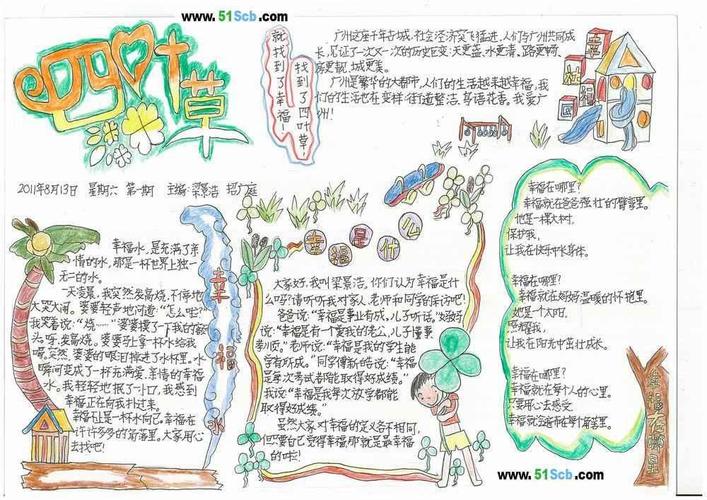 www.51Scb.com
四叶草
找到了四叶草！
就找到了幸福！
广州这座千年古城，社会经济突飞猛进，人们与广州共同成
长，见证了一次又一次的历史巨变：天更蓝、水更清、路更畅、
房更靓、城更美。
广州是繁华的大都市，人们的生活越来越幸福，我
们的生活也在变样：街道整洁、鸟语花香，我爱广
州！
幸福社区
2011年8月13日 星期六 第一期 主编：梁景浩 招广庭
幸福水
幸福水，是充满了亲
情的水，那是一杯世界上独一
无二的水。
一天凌晨，我突然发高烧，不停地
大哭大闹。婆婆轻声地问道：“怎么啦？”
我哭着说：“烧……”婆婆摸了一下我的额
头，呀，发高烧。婆婆马上拿一杯水给我
喝，突然，婆婆的眼泪掉进了水杯里。水
瞬间变成了一杯充满爱、亲情的幸福
水。我轻轻地抿了一小口，我感到
幸福正在向我扑过来。
幸福也是一杯水向己，幸福在
许许多多的角落里，大家用心
去找吧！
幸福是什么
大家好，我叫梁景浩，你们认为幸福是什
么吗？请听听我对家人、老师和同学的采访吧！
爸爸说：“幸福是事业有成，儿子听话。”妈妈
说：“幸福是有个爱我的老公，儿子懂事
孝顺。”老师说：“幸福是我的学生能
学有所成。”同学傅新皓说：“幸福
是每次考试都能取得好成绩。”
我说：“幸福是我每次放学都能
取得好成绩。”
虽然大家对幸福的定义各不相同，
但只要自己觉得幸福，那就是最幸福
的啦！
幸福在哪里？
幸福就在爸爸强壮的臂弯里。
他是一棵大树，
保护我，
让我在快乐中长身体。
幸福在哪里？
幸福就在妈妈温暖的怀抱里。
她是一个太阳，
照耀我，
让我在阳光中茁壮成长。
幸福在哪里？
幸福就在每个人的心里。
只要用心去感受，
幸福就会布在每个角落里。
幸福在哪里
www.51Scb.com